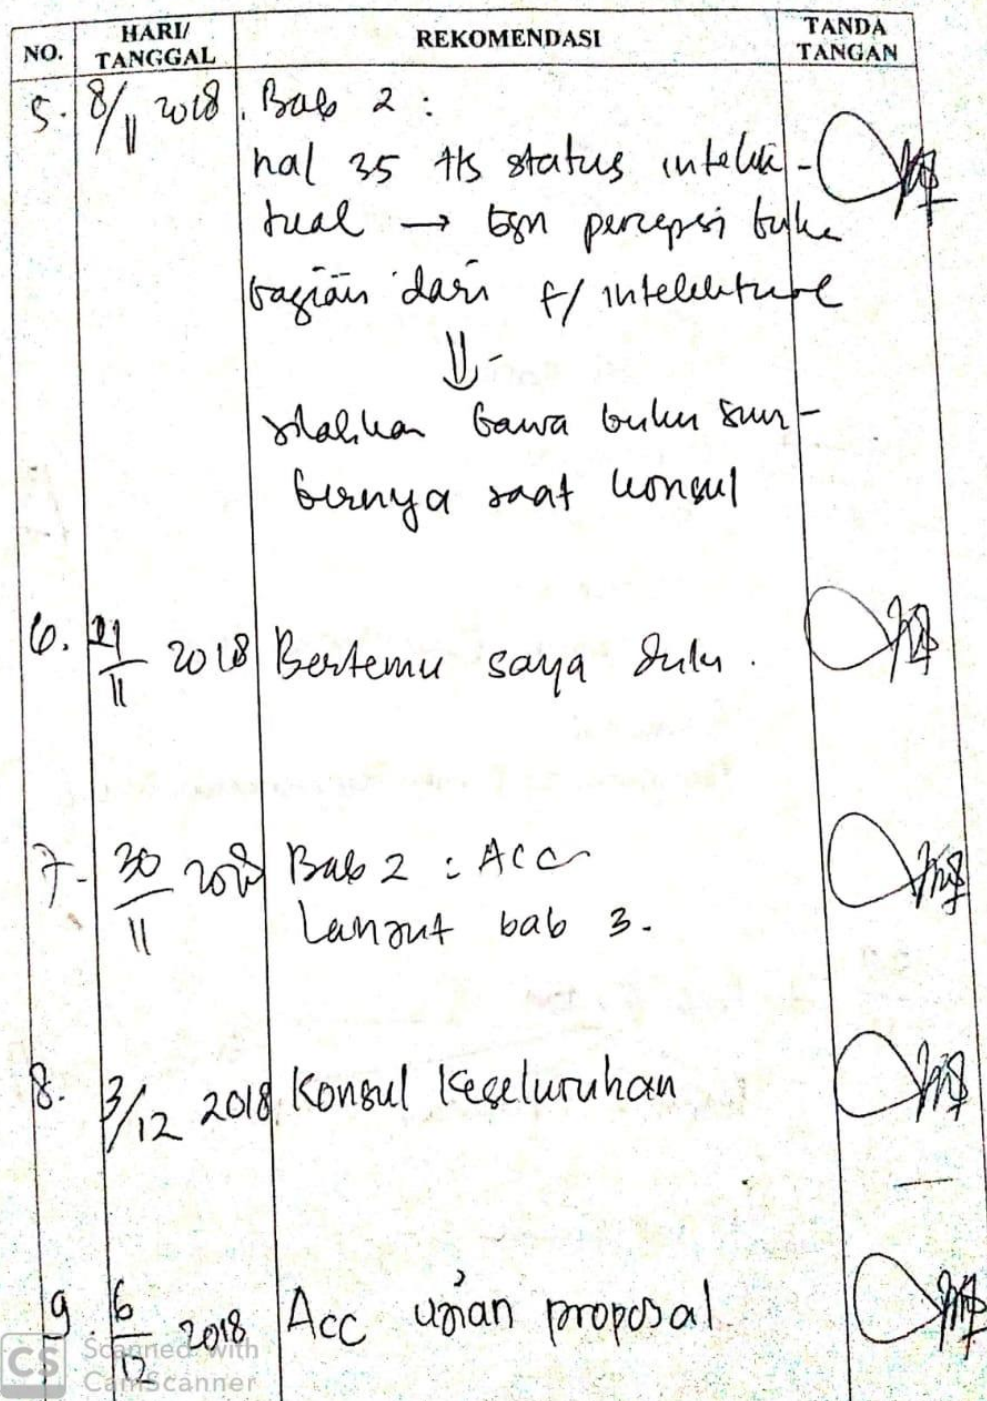 NO. HARI/ TANGGAL REKOMENDASI TANDA TANGAN
5. 8/11 2018. Bab 2 :
hal 35 ttg status intelek-
tual → bgn percepsi buka
bagian dari f/ intelektual
⇓
silahkan bawa buku sum-
bernya saat konsul
6. 21/11 2018 Bertemu saya dulu.
7. 30/11 2018 Bab 2 : Acc
Lanjut bab 3.
8. 3/12 2018 Konsul Keseluruhan
9. 6/12 2018 Acc ujian proposal
CS Scanned with
CamScanner